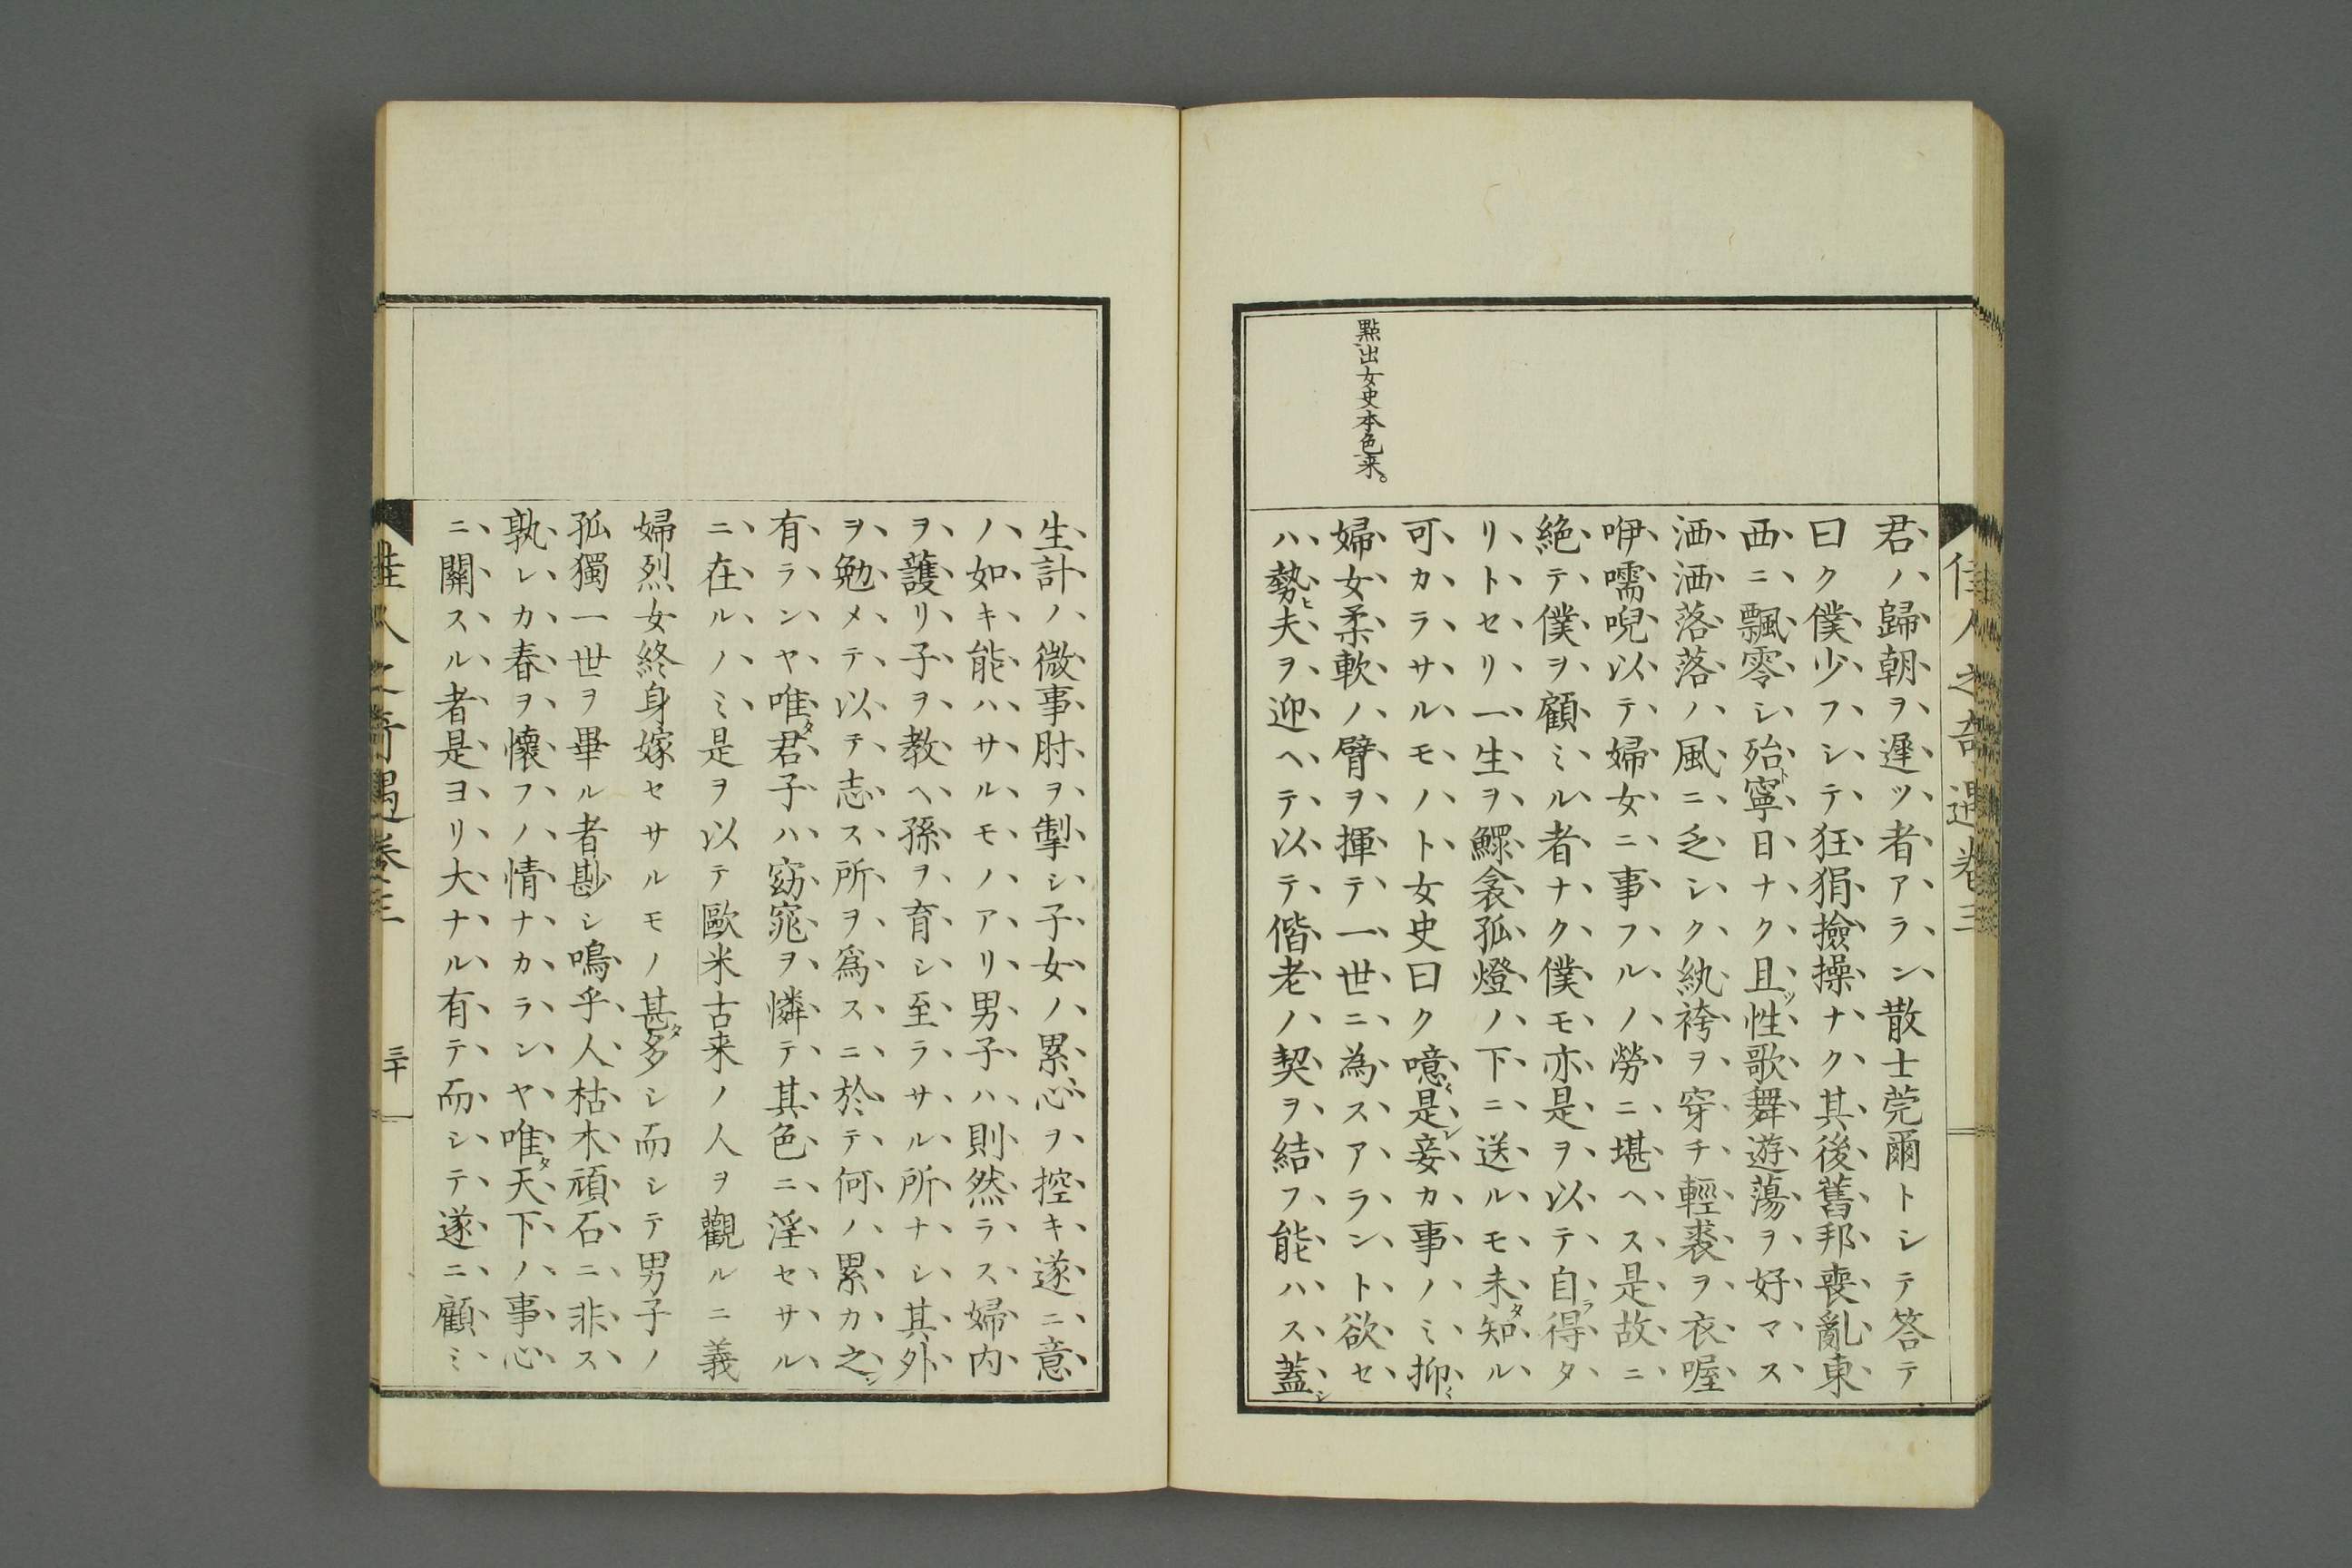 佳人之奇遇卷三
點出女史本色来。
君ノ歸朝ヲ遲ツ者アラン散士莞爾トシテ答テ
曰ク僕少フシテ狂狷撿操ナク其後舊邦喪亂東
西ニ飄零シ殆ト寧日ナク且ツ性歌舞遊蕩ヲ好マス
洒洒落落ノ風ニ乏シク紈袴ヲ穿チ輕裘ヲ衣喔
咿嚅唲以テ婦女ニ事フルノ勞ニ堪ヘス是故ニ
絶テ僕ヲ顧ミル者ナク僕モ亦是ヲ以テ自ラ得タ
リトセリ一生ヲ鰥衾孤燈ノ下ニ送ルモ未タ知ル
可カラサルモノト女史曰ク噫々是レ妾カ事ノミ抑々
婦女柔軟ノ臂ヲ揮テ一世ニ為スアラント欲セ
ハ勢ヒ夫ヲ迎ヘテ以テ偕老ノ契ヲ結フ能ハス蓋シ
生計ノ微事肘ヲ掣シ子女ノ累心ヲ控キ遂ニ意
ノ如キ能ハサルモノアリ男子ハ則然ラス婦内
ヲ護リ子ヲ教ヘ孫ヲ育シ至ラサル所ナシ其外
ヲ勉メテ以テ志ス所ヲ爲スニ於テ何ノ累カ之シ
有ランヤ唯タ君子ハ窈窕ヲ憐テ其色ニ淫セサル
ニ在ルノミ是ヲ以テ歐米古来ノ人ヲ觀ルニ義
婦烈女終身嫁セサルモノ甚タ多シ而シテ男子ノ
孤獨一世ヲ畢ル者尠シ鳴乎人枯木頑石ニ非ス
孰レカ春ヲ懷フノ情ナカランヤ唯タ天下ノ事心
ニ關スル者是ヨリ大ナル有テ而シテ遂ニ顧ミ
佳人之奇遇卷三
三十